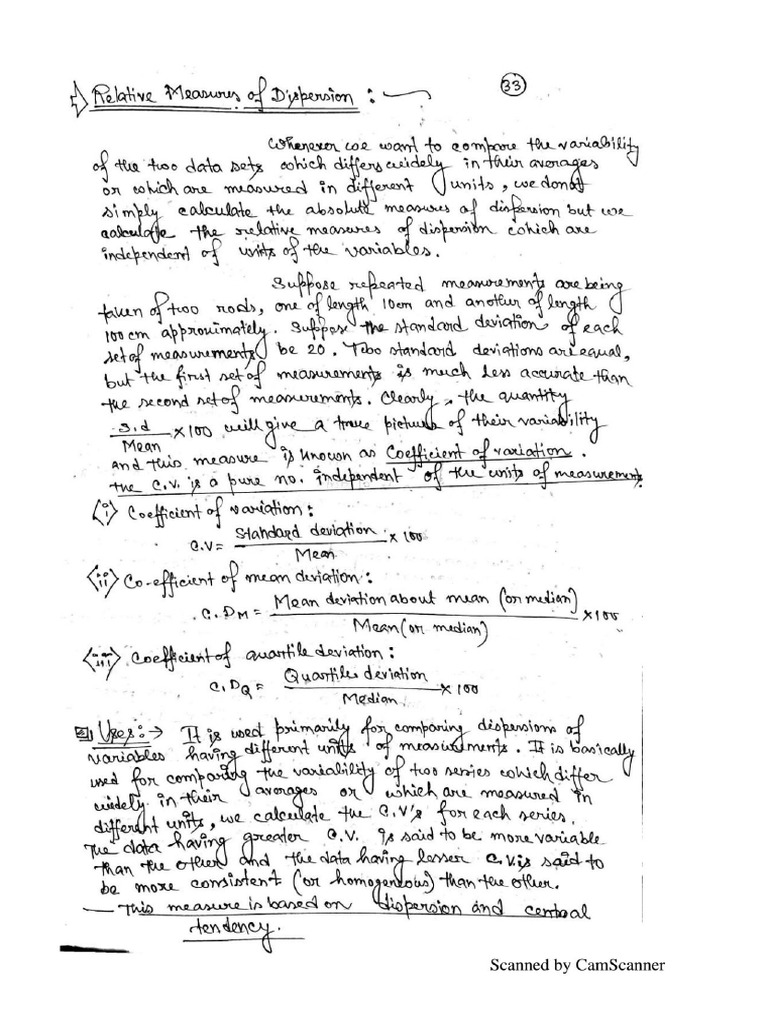 33
Relative Measures of Dispersion :
Whenever we want to compare the variability
of the two data sets which differs widely in their averages
or which are measured in different units, we donot
simply calculate the absolute measures of dispersion but we
calculate the relative measures of dispersion which are
independent of units of the variables.
Suppose repeated measurements are being
taken of two rods, one of length 10cm and another of length
100 cm approximately. Suppose the standard deviation of each
set of measurements be 20. Two standard deviations are equal,
but the first set of measurements is much less accurate than
the second set of measurements. Clearly, the quantity
s.d / Mean × 100 will give a true picture of their variability
and this measure is known as Coefficient of variation.
the C.V. is a pure no. independent of the units of measurements.
<i> Coefficient of variation:
C.V = Standard deviation / Mean × 100
<ii> Co-efficient of mean deviation:
C.D_M = Mean deviation about mean (or median) / Mean (or median) × 100
<iii> Coefficient of quartile deviation:
C.D_Q = Quartile deviation / Median × 100
Uses :→ It is used primarily for comparing dispersions of
variables having different units of measurements. It is basically
used for comparing the variability of two series which differ
widely in their averages or which are measured in
different units, we calculate the C.V's for each series.
The data having greater C.V. is said to be more variable
than the other and the data having lesser C.V. is said to
be more consistent (or homogenious) than the other.
— This measure is based on dispersion and central
tendency.
Scanned by CamScanner